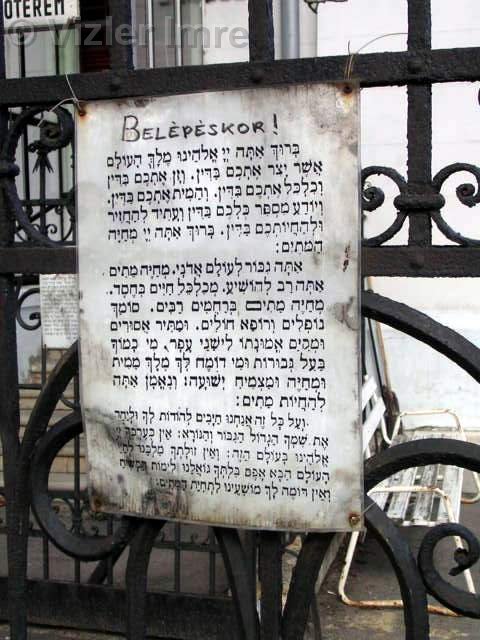 OTEREM
© Vizler Imre
BELÈPÈSKOR!
בָּרוּךְ אַתָּה יְיָ אֱלֹהֵינוּ מֶלֶךְ הָעוֹלָם
אֲשֶׁר יָצַר אֶתְכֶם בַּדִּין. וְזָן אֶתְכֶם בַּדִּין
וְכִלְכֵּל אֶתְכֶם בַּדִּין. וְהֵמִית אֶתְכֶם בַּדִּין.
וְיוֹדֵעַ מִסְפַּר כֻּלְּכֶם בַּדִּין וְעָתִיד לְהַחֲזִיר
וּלְהַחֲיוֹתְכֶם בַּדִּין. בָּרוּךְ אַתָּה יְיָ מְחַיֵּה
הַמֵּתִים:
אַתָּה גִּבּוֹר לְעוֹלָם אֲדֹנָי. מְחַיֵּה מֵתִים
אַתָּה רַב לְהוֹשִׁיעַ. מְכַלְכֵּל חַיִּים בְּחֶסֶד.
מְחַיֵּה מֵתִים בְּרַחֲמִים רַבִּים. סוֹמֵךְ
נוֹפְלִים וְרוֹפֵא חוֹלִים. וּמַתִּיר אֲסוּרִים
וּמְקַיֵּם אֱמוּנָתוֹ לִישֵׁנֵי עָפָר. מִי כָמוֹךָ
בַּעַל גְּבוּרוֹת וּמִי דוֹמֶה לָּךְ מֶלֶךְ מֵמִית
וּמְחַיֶּה וּמַצְמִיחַ יְשׁוּעָה: וְנֶאֱמָן אַתָּה
לְהַחֲיוֹת מֵתִים:
וְעַל כָּל זֶה אֲנַחְנוּ חַיָּבִים לְהוֹדוֹת לְךָ וּלְיַחֵד
אֶת שִׁמְךָ הַגָּדוֹל הַגִּבּוֹר וְהַנּוֹרָא: אֵין כְּעֶרְכְּךָ יְיָ
אֱלֹהֵינוּ בָּעוֹלָם הַזֶּה: וְאֵין זוּלָתְךָ מַלְכֵּנוּ לְחַיֵּי
הָעוֹלָם הַבָּא אֶפֶס בִּלְתְּךָ גּוֹאֲלֵנוּ לִימוֹת הַמָּשִׁיחַ
וְאֵין דּוֹמֶה לְךָ מוֹשִׁיעֵנוּ לִתְחִיַּת הַמֵּתִים: